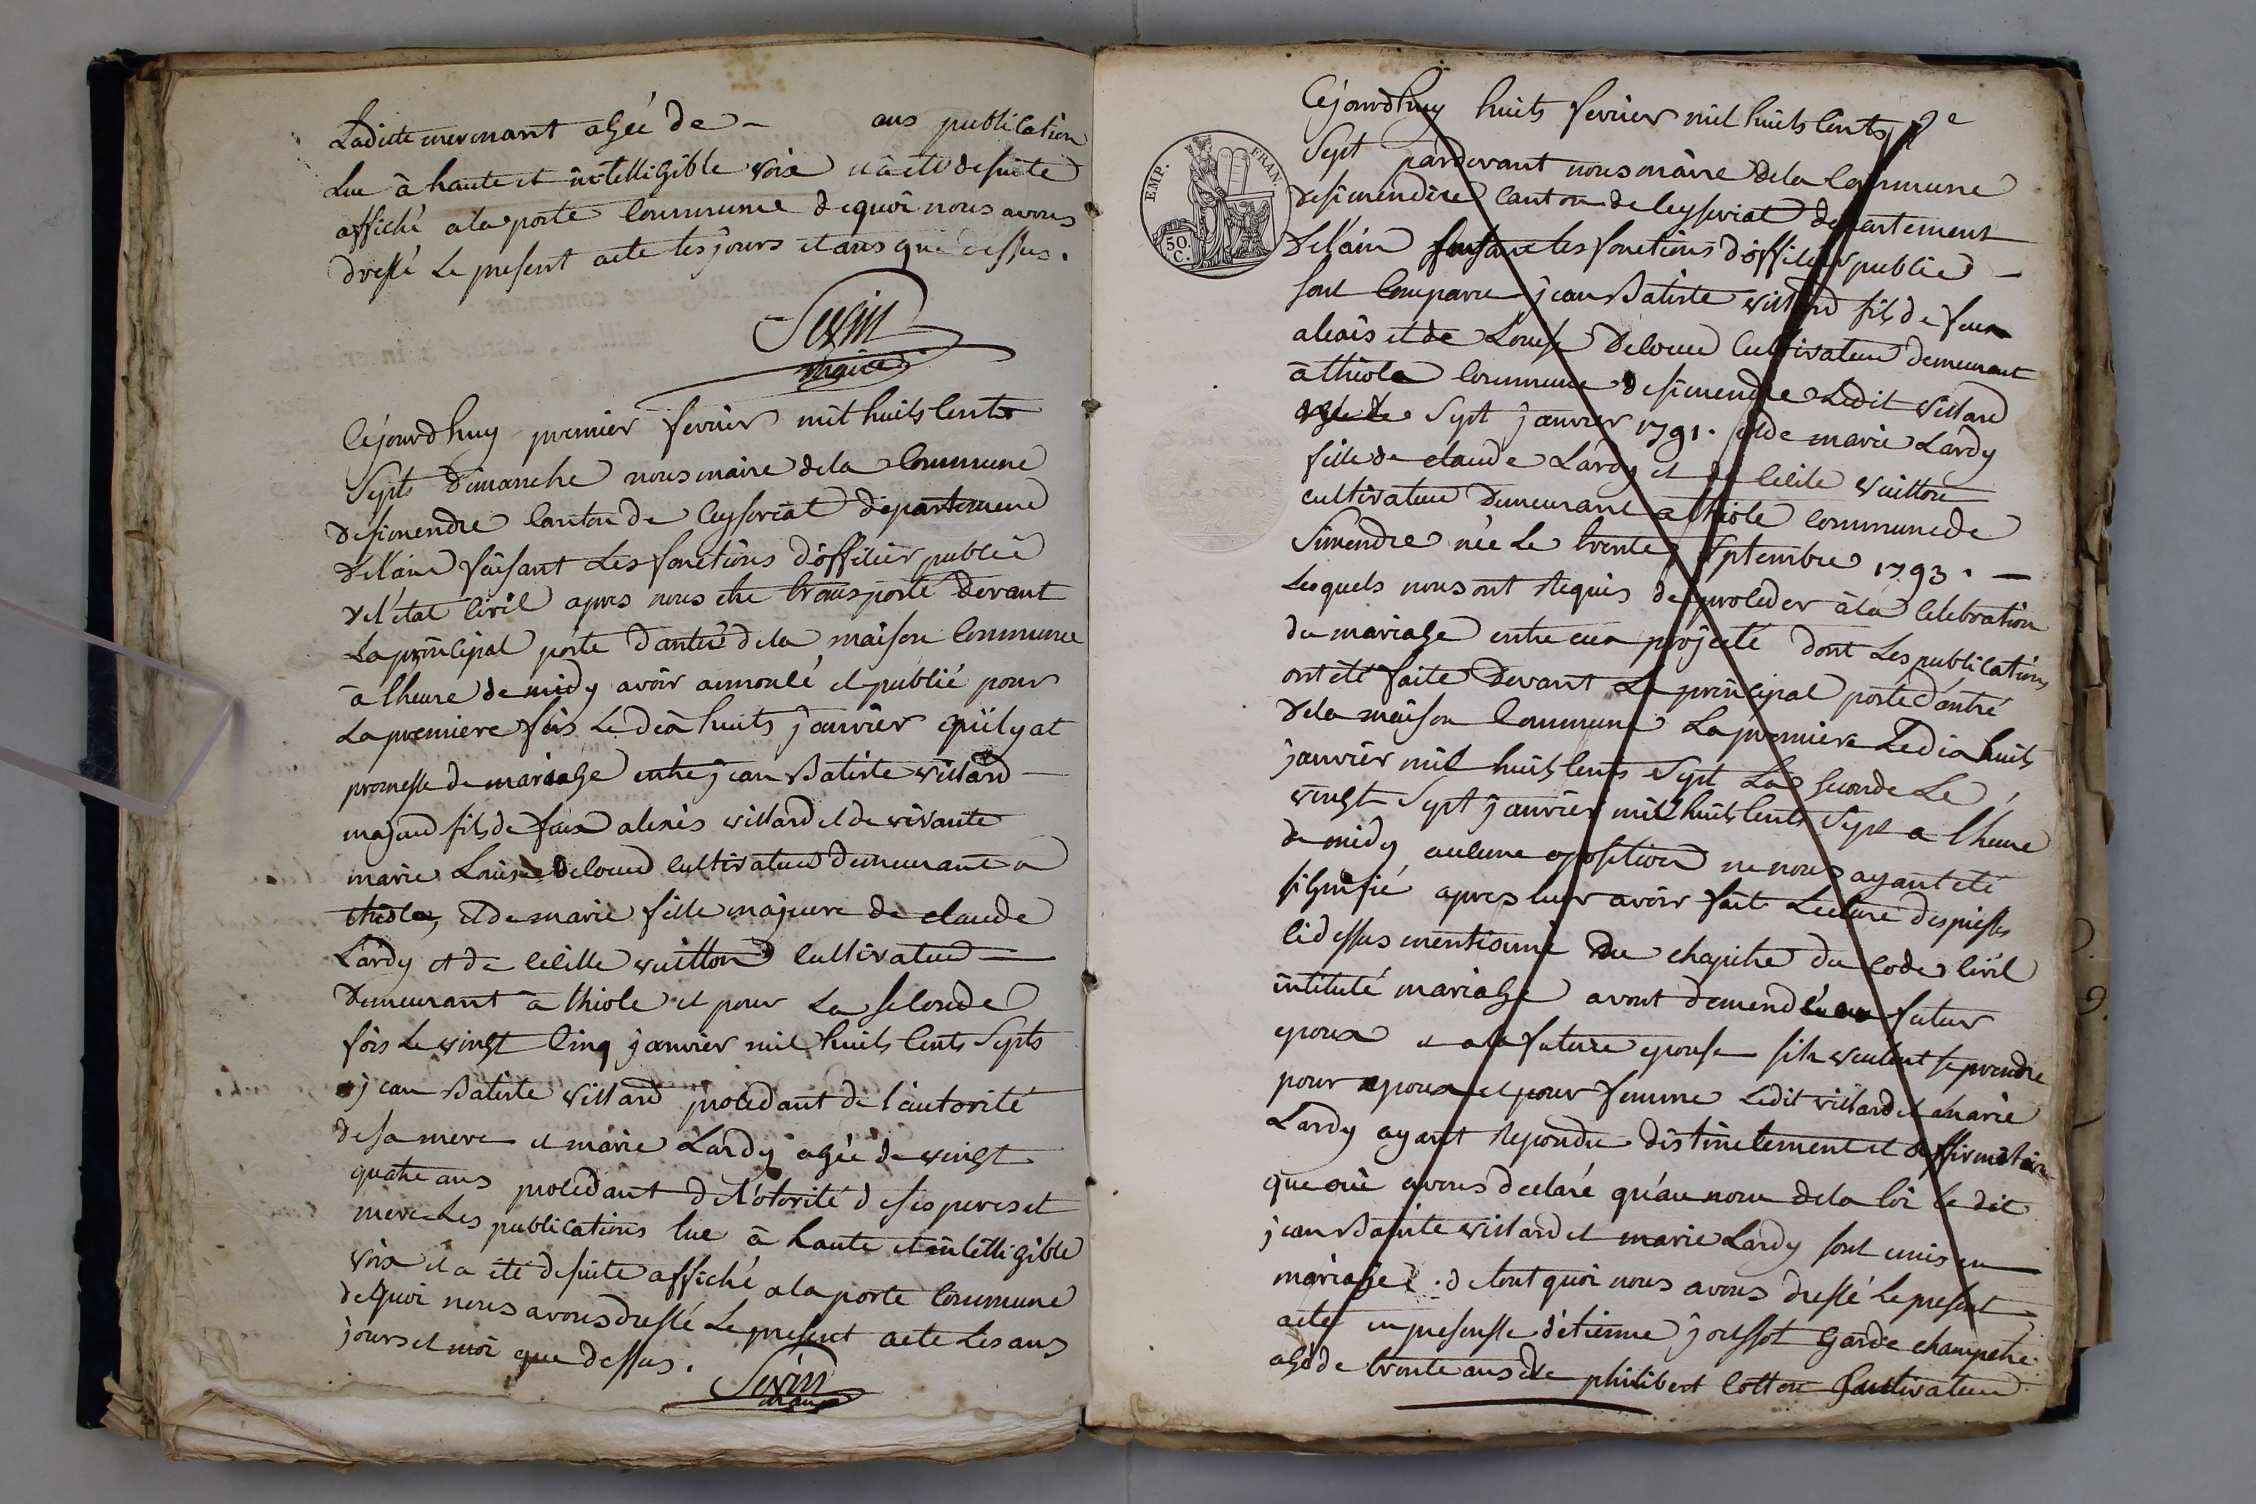 Laditte mermant agée de - ans publication
Lue à haute et intelligible voix et a eté desuite
affiché a la porte Commune dequoi nous avons
dressé Le present acte les jours et ans que dessus.
Sevin
maire
Cejourdhuy premier fevrier mil huits Cents
Septs Dimanche nous maire dela Commune
desimendre Canton de Ceyseriat departement
delain faisant Les fonctions d'officier publié
del'état Civil apres nous etre transporté devant
La principal porte dantré dela maison Commune
à lheure de midy avoir annoncé et publié pour
La premiere fois Le dix huits janvier quilyat
promesse de mariage entre jean Batiste villard
majeur fils de feux alexis villard et de vivante
marie Louise Deloeud cultivateur demeurant a
thiole, et de marie fille majeure de claude
Lardy et de Cecille vuitton Cultivateur
Demeurant à thiole et pour La seconde
fois Le vingt Cinq janvier mil huits Cents Septs
jean Batiste villard procedant de l'autorité
desa mere et marie Lardy agée de vingt
quatre ans procedant de l'otorité desis peres et
mere Les publications lue à haute et intelligible
voix et a eté desuite affiché a la porte Commune
dequoi nous avons dressé Le present acte Les ans
jours et moi que dessus.
Sevin
maire
EMP. FRAN.
50 C.
Cejourdhuy huits fevrier mil huits Cents
Sept pardevant nous maire dela Commune
desimendre Canton de Ceyseriat departement
Delain faisant les fonctions d'officier public
sont Comparu jean Batiste villard fils de feux
alexis et de Louise Deloeud Cultivateur demeurant
à thiole Commune desimendre Ledit villard
Sept janvier 1791. et de marie Lardy
fille de claude Lardy et de Cecile vuitton
cultivateur Demeurant a thiole Commune de
Simendre née Le trente Septembre 1793.
Lesquels nous ont Requis de proceder à la Celebration
du mariage entre eux projeté dont Les publications
ont été faite Devant La principal porte d'antré
Dela maison Commune La premiere Le dix huits
janvier mil huits Cents Sept La Seconde Le
vingt Sept janvier mil huits Cents Sept a lheure
de midy aucune oposition ne nous ayant eté
signifié apres leur avoir fait Lecture des piesses
Cidessus mentionné Du chapitre du Code Civil
intitulé mariage avont demendé au futur
epoux et a la future epouse sils veulent se prendre
pour epoux et pour femme Ledit villard et marie
Lardy ayant Repondu distinctement et
que oui avons declaré qu'au nom dela loi Le dit
jean Batiste villard et marie Lardy sont unis en
mariage. de tout quoi nous avons dressé Le present
acte en presensse d'etienne joussot Garde champetre
agé de trente ans et de philibert Cotton Cultivateur